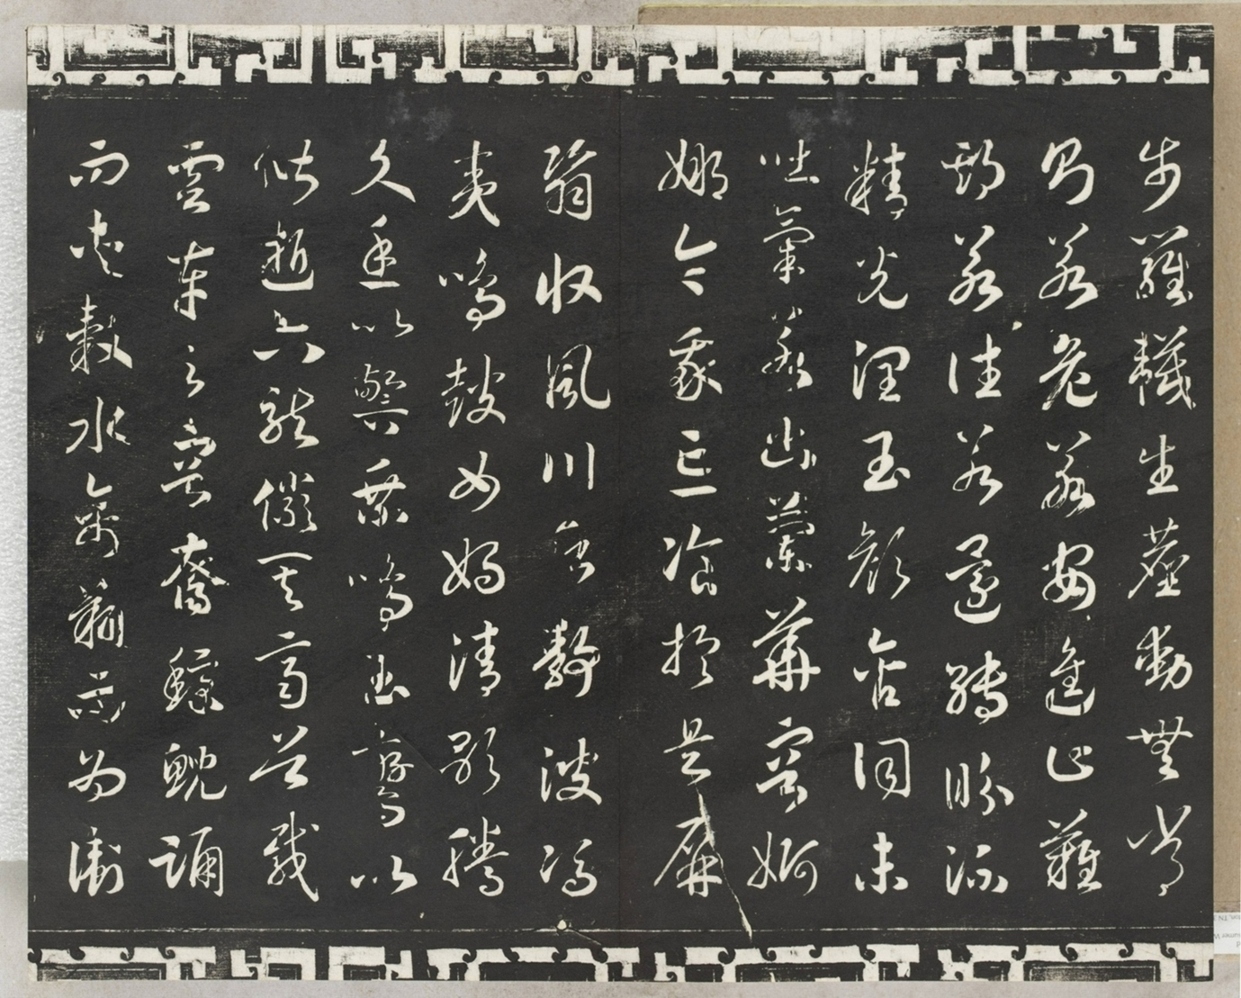 步羅襪生塵動無常
則若危若安進止難
期若往若還轉眄流
精光潤玉顏含詞未
吐氣若幽蘭華容婀
娜令我忘飡於是屏
翳收風川后靜波馮
夷鳴鼓女媧清歌騰
文魚以警乘鳴玉鸞以
偕逝六龍儼其齊首載
雲車之容裔鯨鯢踊
而夾轂水禽翔而為衛